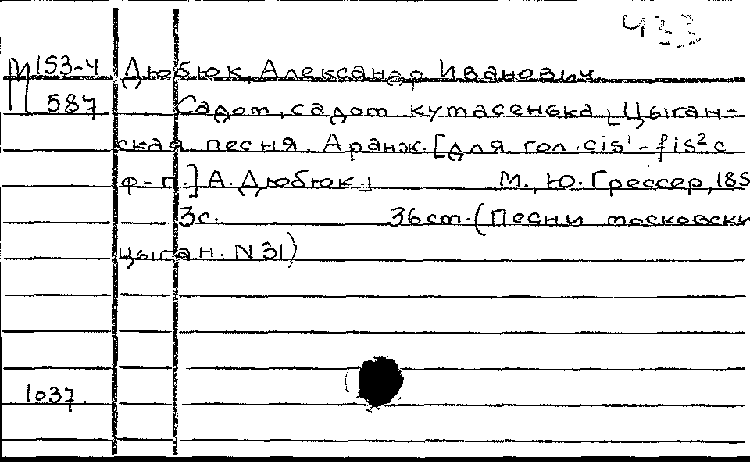 433
М 153-4 Дюбюк, Александр Иванович.
587 Садом, садом кутасенька [Цыган-
ская песня. Аранж. [для гол. cis¹-fis² с
ф-п.] А. Дюбюк.] М., Ю. Грессер, 185
3с. 36см. (Песни московски
цыган. N 31)
1037.